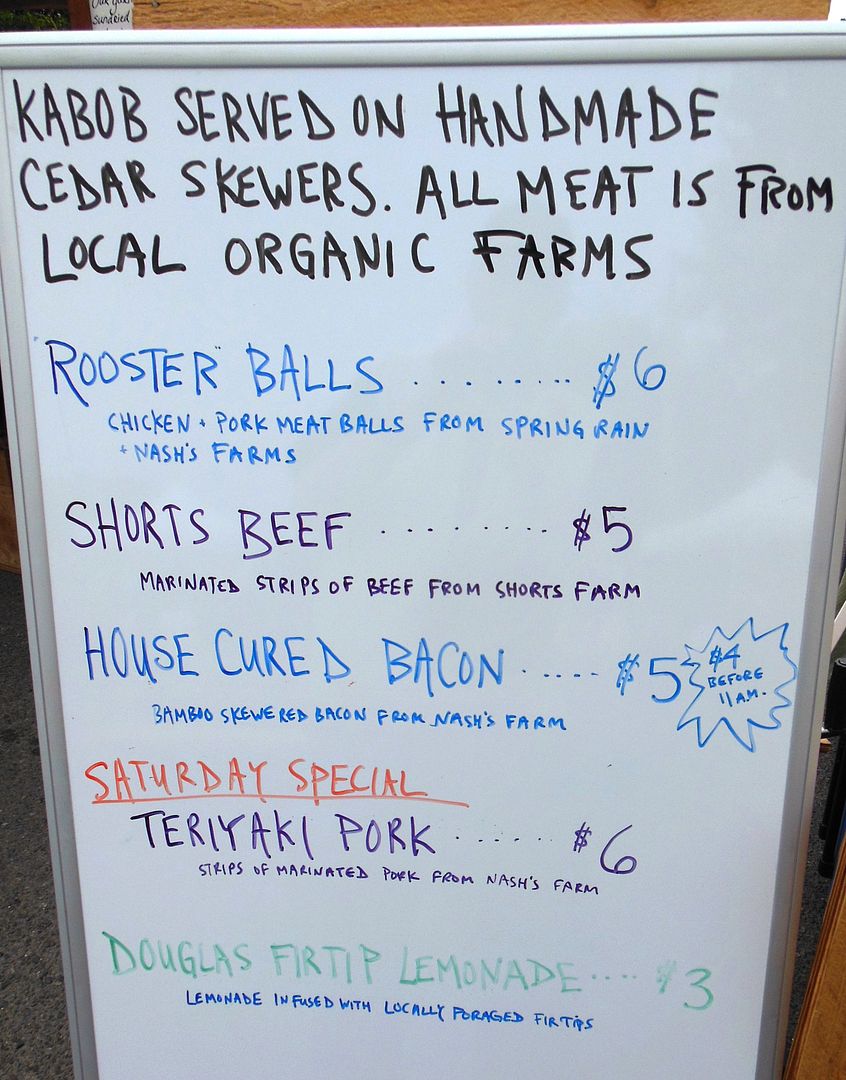 Sundried
KABOB SERVED ON HANDMADE
CEDAR SKEWERS. ALL MEAT IS FROM
LOCAL ORGANIC FARMS
"ROOSTER" BALLS ......... $6
CHICKEN + PORK MEAT BALLS FROM SPRING RAIN
+ NASH'S FARMS
SHORTS BEEF ......... $5
MARINATED STRIPS OF BEEF FROM SHORTS FARM
HOUSE CURED BACON ..... $5
$4
BEFORE
11 A.M.
BAMBOO SKEWERED BACON FROM NASH'S FARM
SATURDAY SPECIAL
TERIYAKI PORK ....... $6
STRIPS OF MARINATED PORK FROM NASH'S FARM
DOUGLAS FIRTIP LEMONADE .... $3
LEMONADE INFUSED WITH LOCALLY FORAGED FIRTIPS